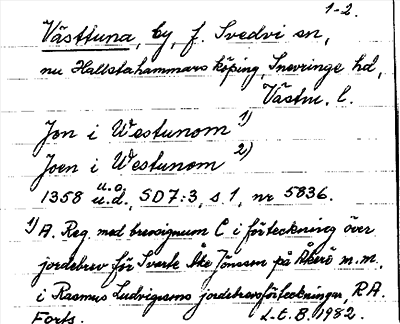 1-2.
Västtuna, by, f. Svedvi sn,
nu Hallstahammars köping, Snevringe hd,
Västm. l.
Jon i Westunom 1)
Joen i Westunom 2)
1358 u.o. u.d., SD 7:3, s. 1, nr 5836.
1) A. Reg. med brevsignum C i förteckning över
jordebrev för Svarte Åke Jönsson på Åkerö m.m.
i Rasmus Ludvigssons jordebrevsförteckningar, RA.
Forts. L-E.B. 1982.